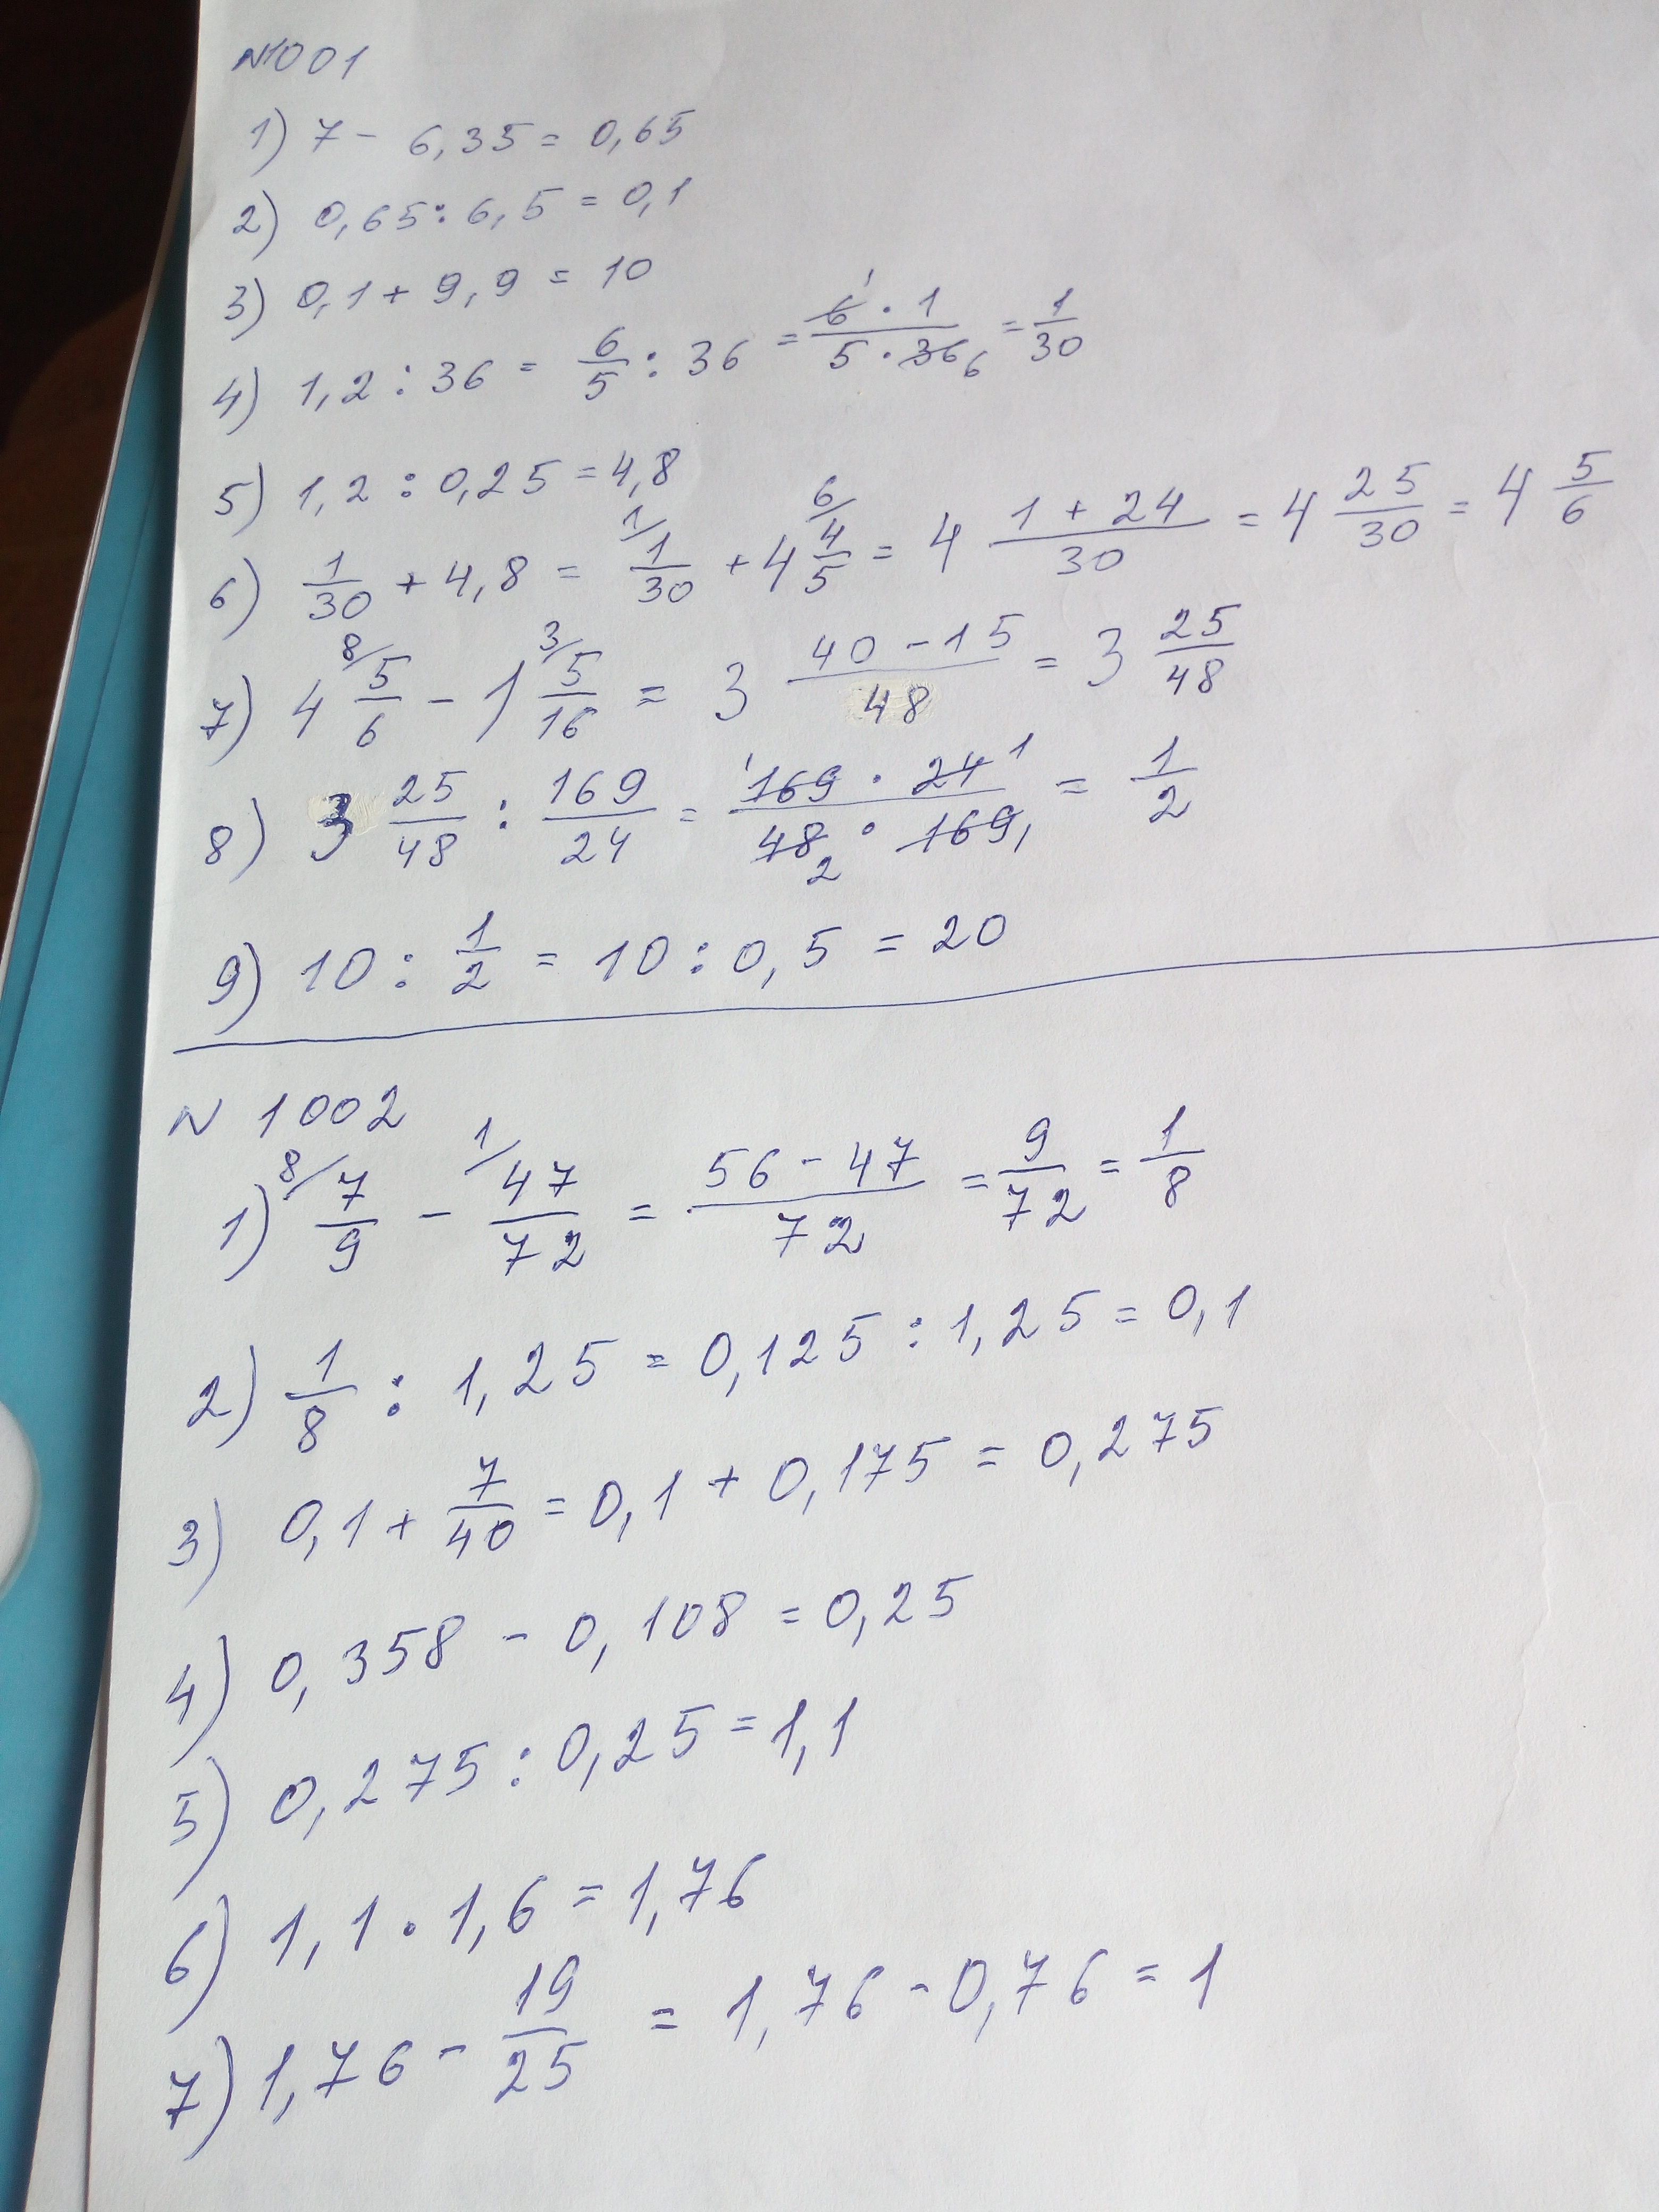 N1001
1) 7 - 6,35 = 0,65
2) 0,65 : 6,5 = 0,1
3) 0,1 + 9,9 = 10
4) 1,2 : 36 = 6/5 : 36 = 6¹ · 1 / 5 · 36₆ = 1/30
5) 1,2 : 0,25 = 4,8
6) 1/30 + 4,8 = ¹⁄ 1/30 + 4 ⁶⁄ 4/5 = 4 (1 + 24)/30 = 4 25/30 = 4 5/6
7) 4 ⁸⁄ 5/6 - 1 ³⁄ 5/16 = 3 (40 - 15)/48 = 3 25/48
8) 3 25/48 : 169/24 = ¹169 · 24¹ / 48₂ · 169₁ = 1/2
9) 10 : 1/2 = 10 : 0,5 = 20
N 1002
1) ⁸⁄ 7/9 - ¹⁄ 47/72 = (56 - 47)/72 = 9/72 = 1/8
2) 1/8 : 1,25 = 0,125 : 1,25 = 0,1
3) 0,1 + 7/40 = 0,1 + 0,175 = 0,275
4) 0,358 - 0,108 = 0,25
5) 0,275 : 0,25 = 1,1
6) 1,1 · 1,6 = 1,76
7) 1,76 - 19/25 = 1,76 - 0,76 = 1